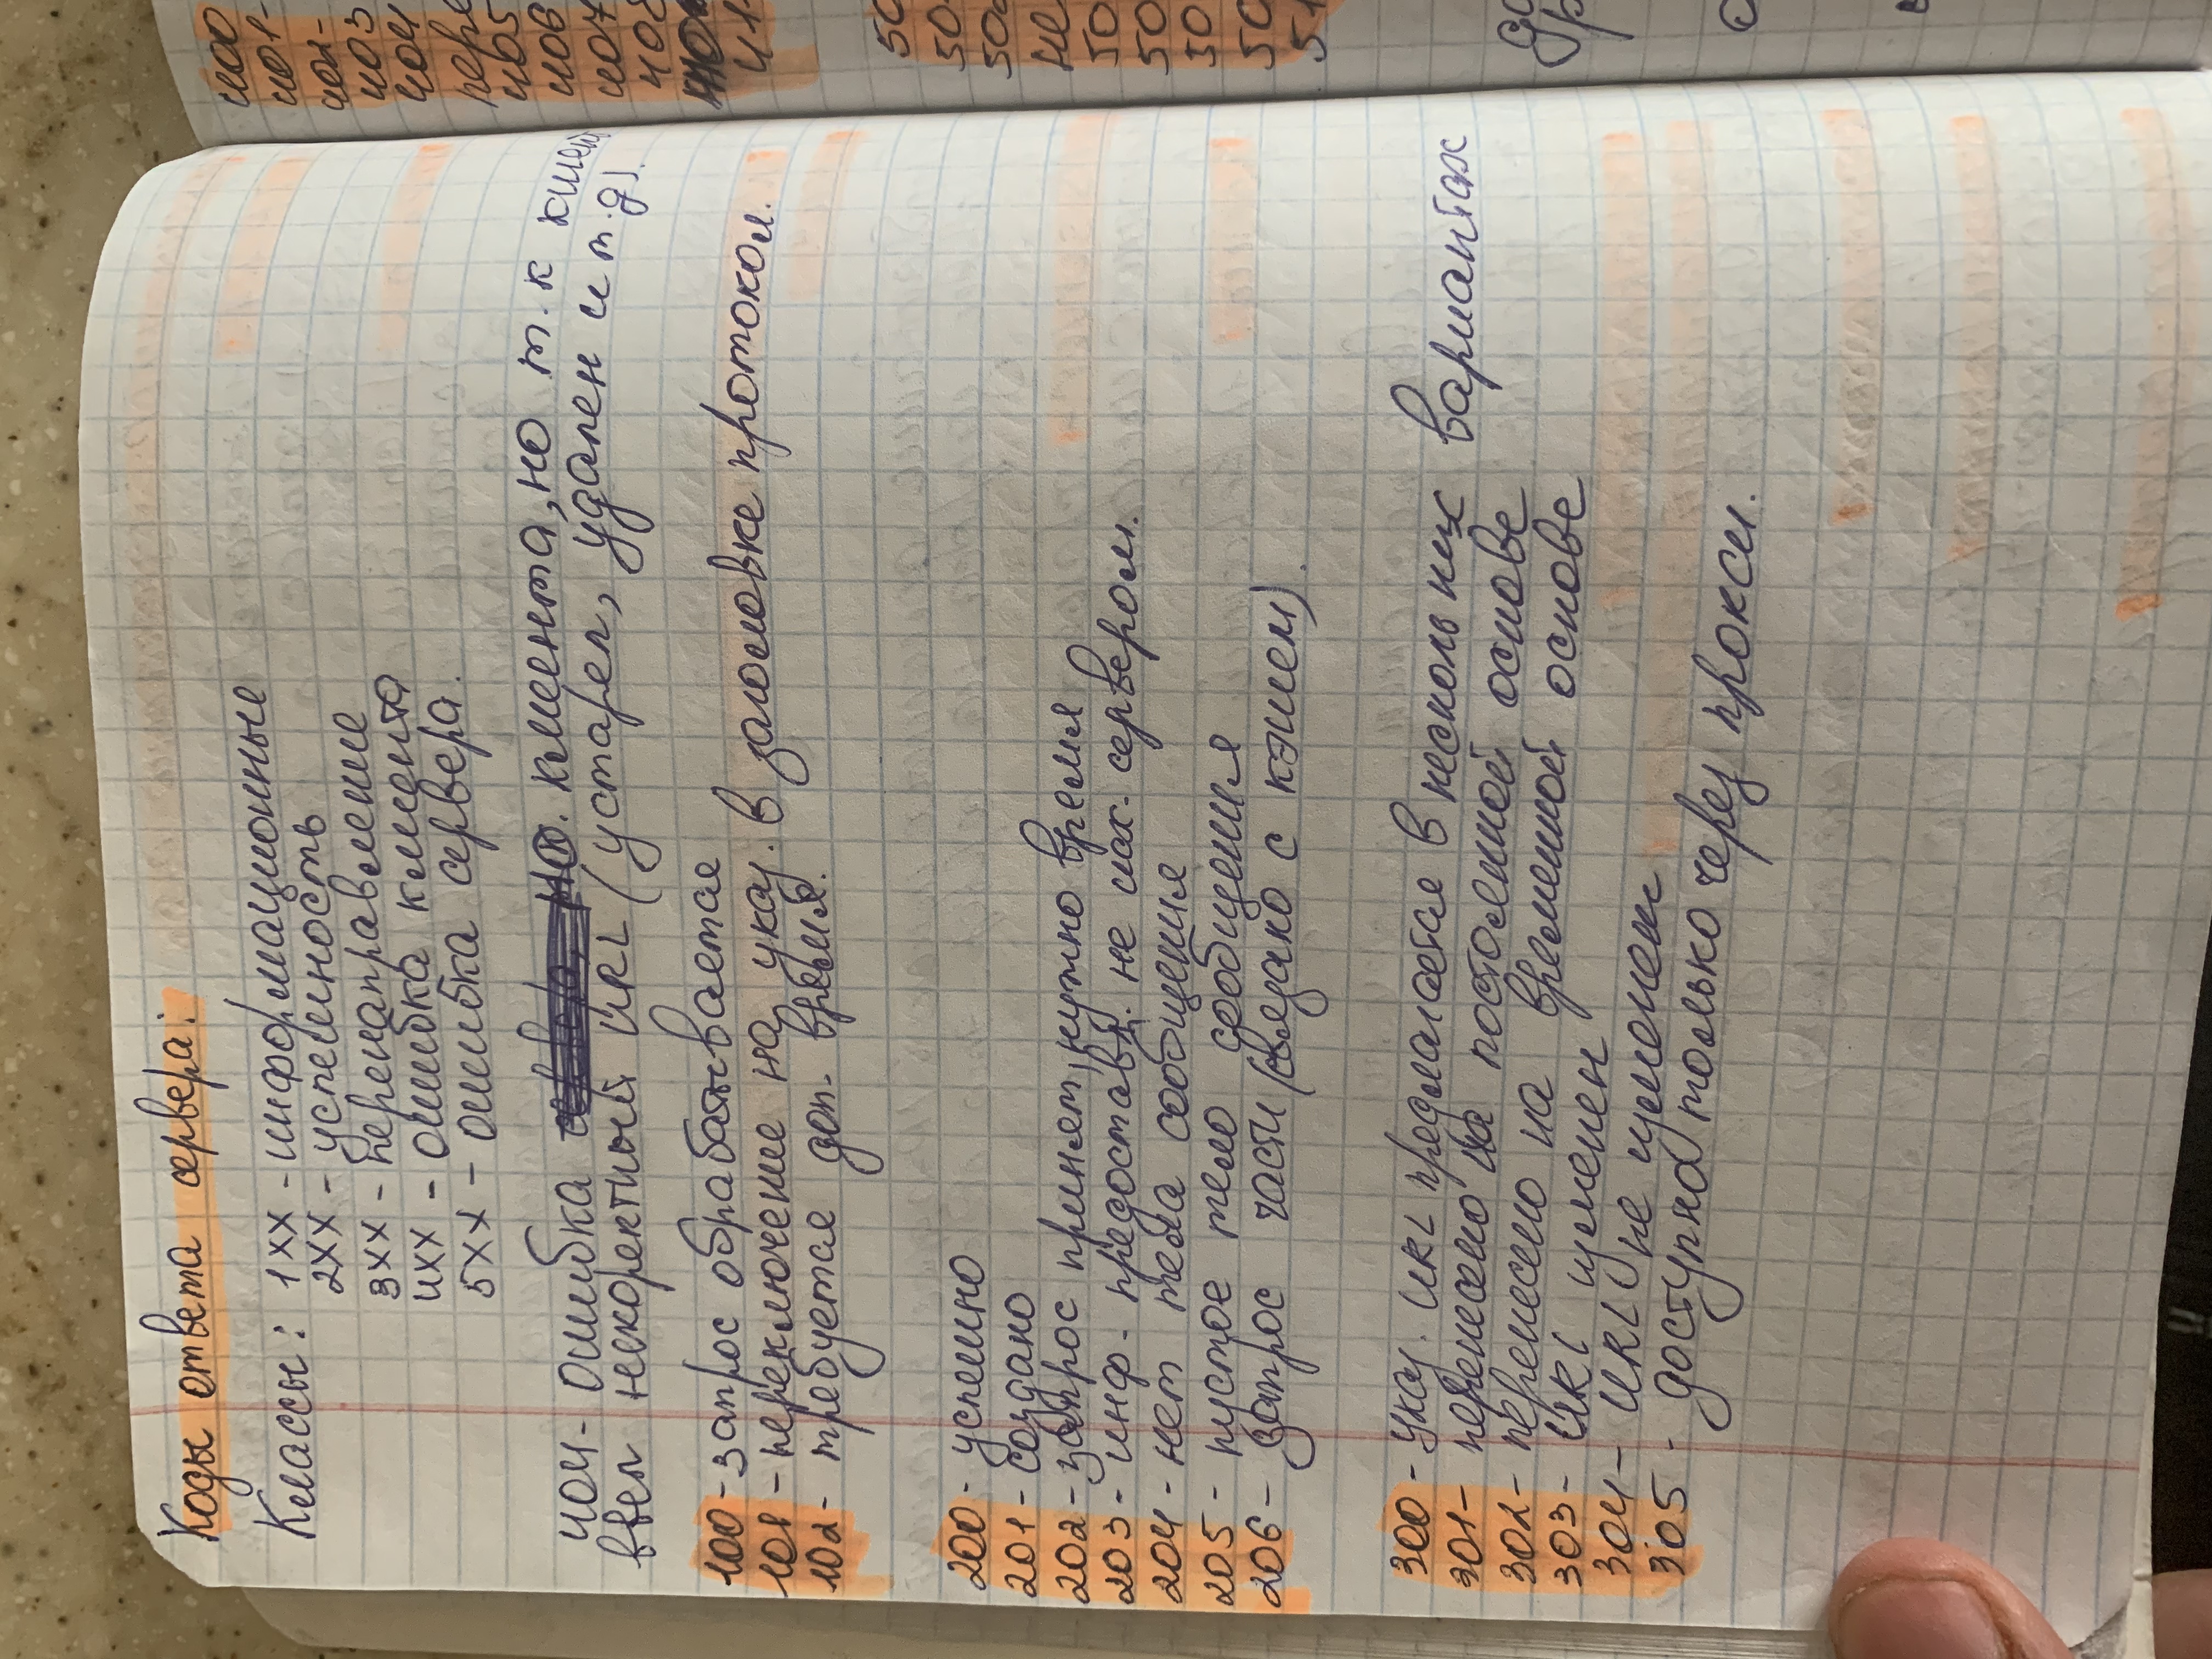 Коды ответа сервера:
Классы: 1ХХ - информационные
2ХХ - успешность
3ХХ - перенаправление
4ХХ - ошибка клиента
5ХХ - ошибка сервера.
404 - ошибка клиента, но т.к клиент
ввел некоректный URL (устарел, удален и т.д).
100 - запрос обрабатывается
101 - переключение на указ. в заголовке протокол.
102 - требуется доп. время.
200 - успешно
201 - создано
202 - запрос принят, нужно время
203 - инф. предоставл. не исх. сервером.
204 - нет тела сообщения
205 - пустое тело сообщения
206 - запрос части (связано с кэшем).
300 - указ. URL предлагается в нескольких вариантах
301 - перенесено на постоянной основе
302 - перенесено на временной основе
303 - URL изменен
304 - URL не изменен
305 - доступно только через прокси.
400
401-
402-
403
404
пере
405
406
407
408
41
50
50
50
не
50
50
50
50
51